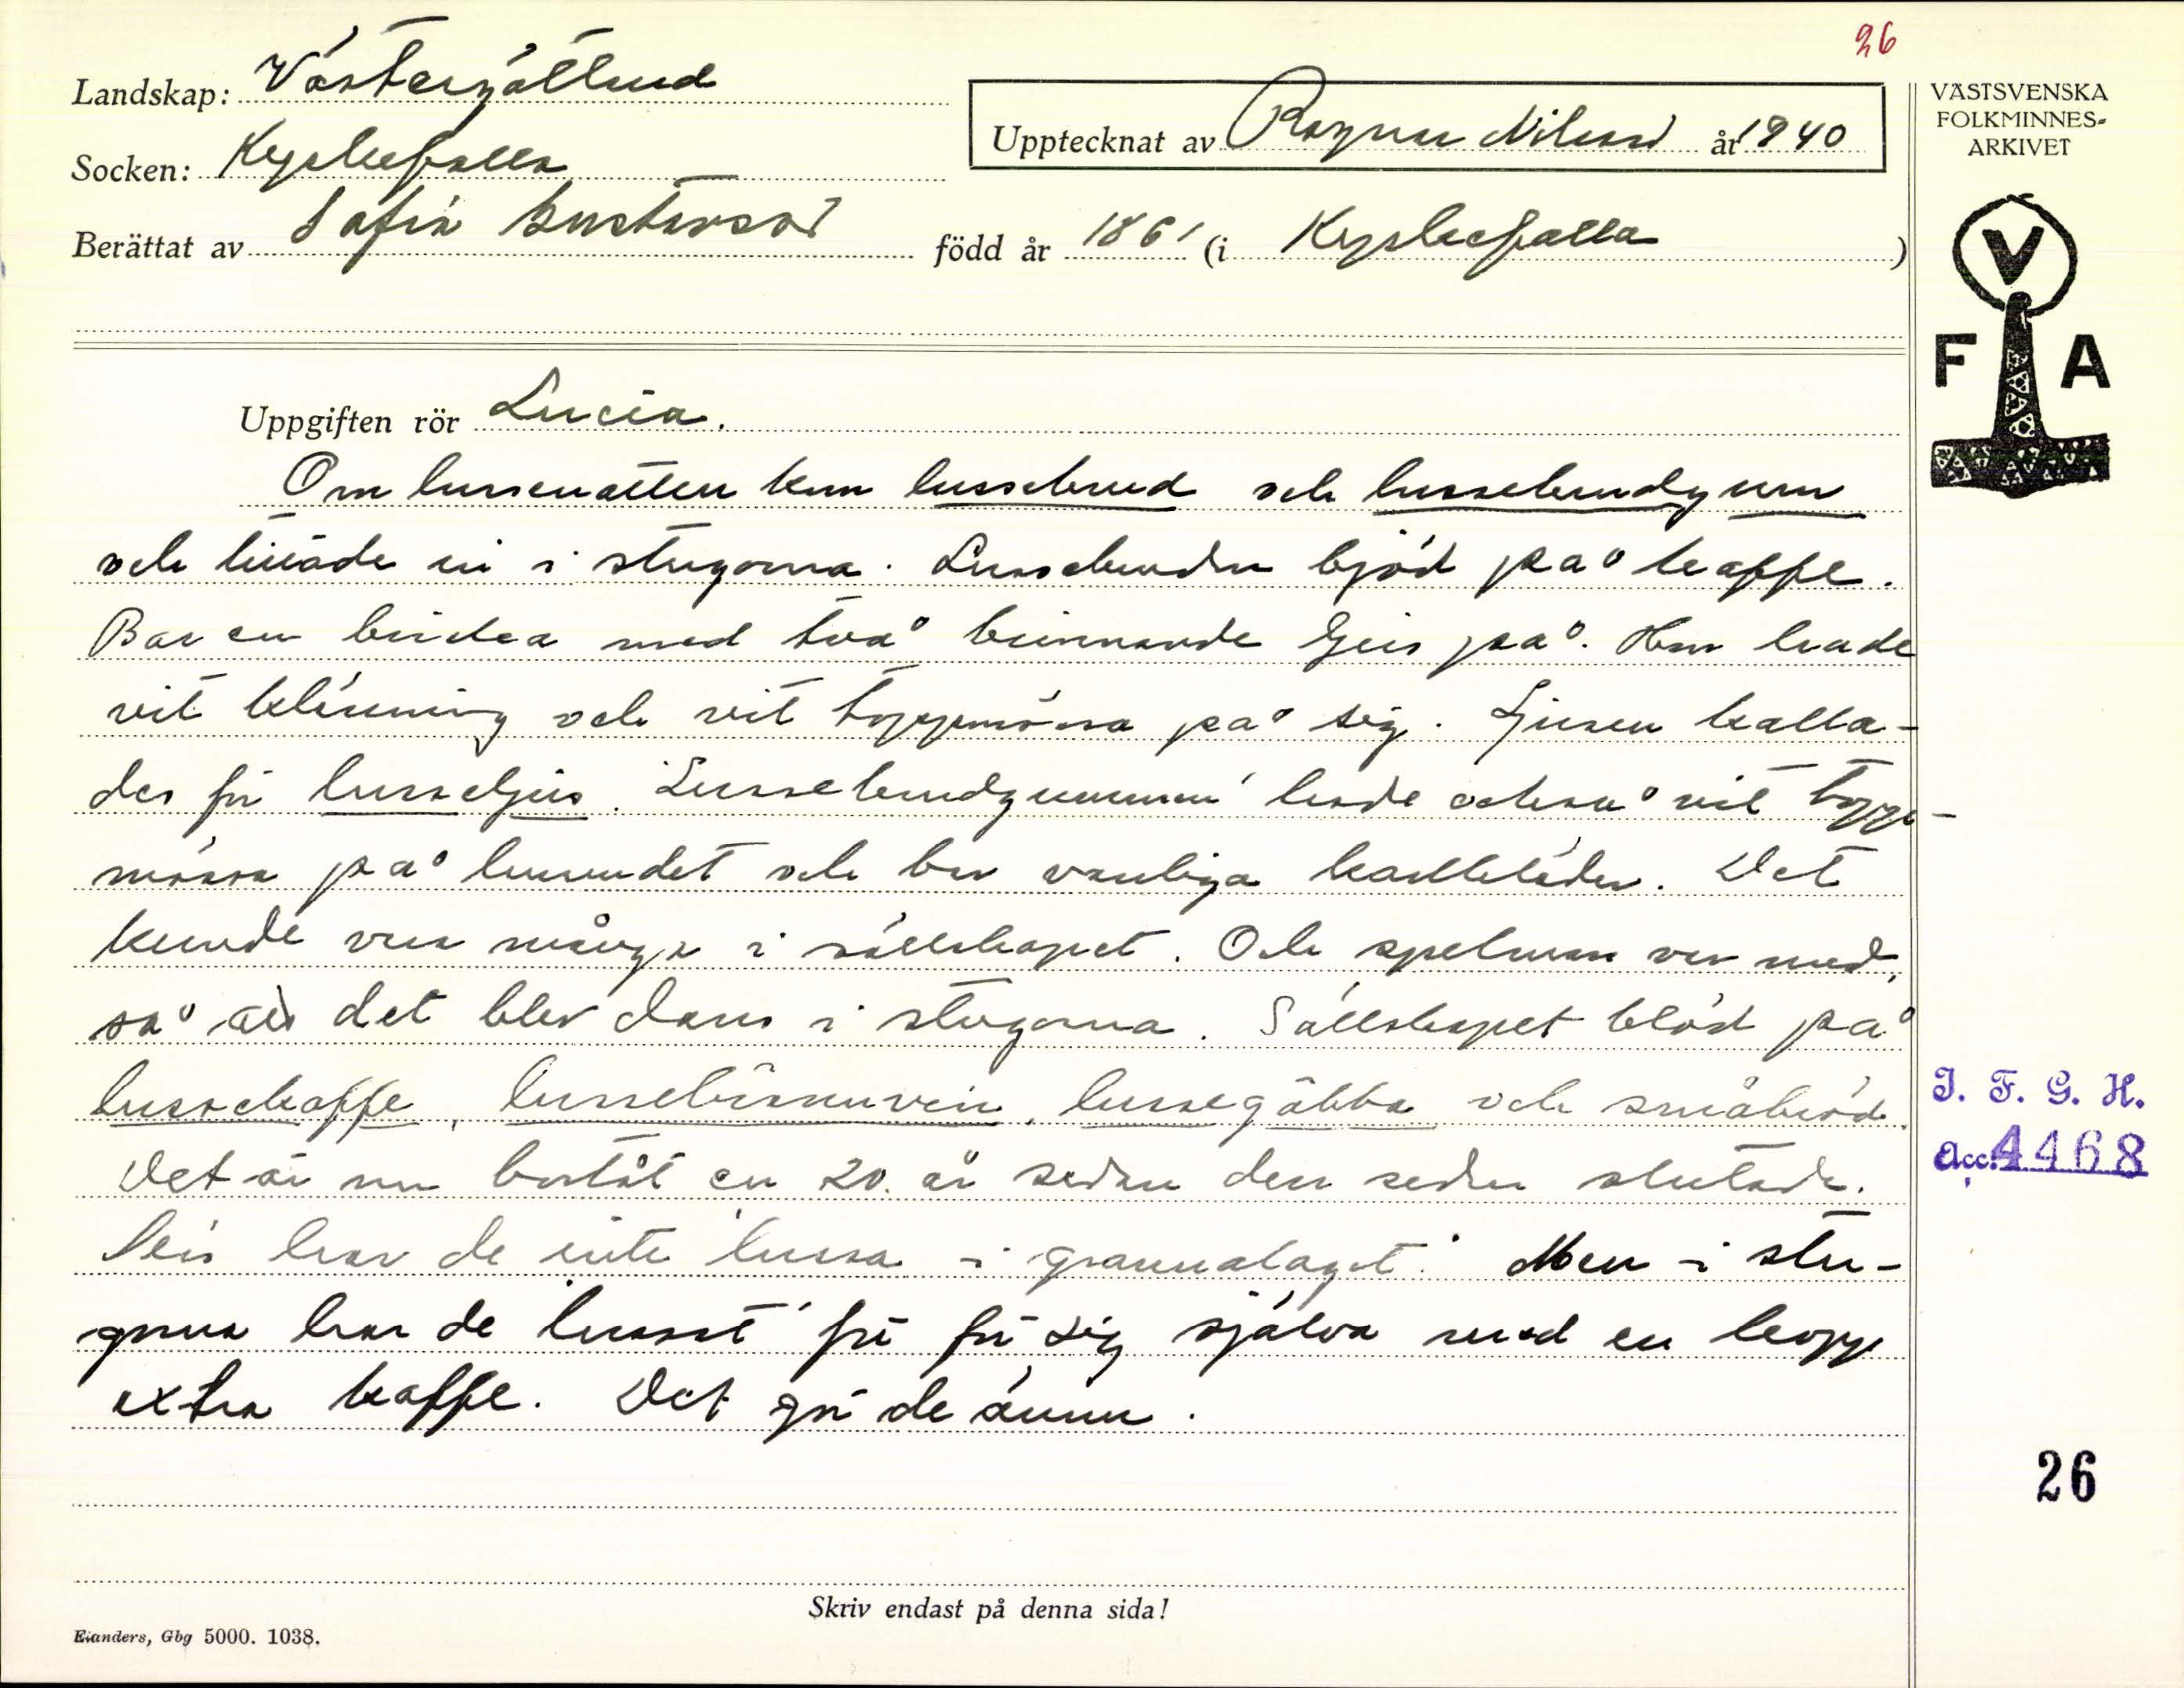 26
Landskap: Västergötland
Socken: Kyrkefalla
Upptecknat av Ragnar Nilsson år 1940
Berättat av Sofia Gustavsson född år 1861 (i Kyrkefalla)
VÄSTSVENSKA
FOLKMINNES-
ARKIVET
V
F A
Uppgiften rör Lucia.
Om lussenatten kom lussebrud och lussebrudgum
och trädde in i stugorna. Lussebruden bjöd på kaffe.
Bar en bricka med två brinnande ljus på. Hon hade
vit klänning och vit toppmössa på sig. Ljusen kalla-
des för lusseljus. Lussebrudgummen hade också vit topp-
mössa på huvudet och bar vanliga karlkläder. Det
kunde vara många i sällskapet. Och spelman var med,
så att det blev dans i stugorna. Sällskapet bjöd på
lussekaffe, lussebrännvin, lussegöbba och småbröd.
Det är nu bortåt en 20. år sedan den seden slutade.
Nu har de inte lussa i grannalaget. Men i stu-
gorna har de lussat för för sig själva med en kopp
extra kaffe. Det gör de ännu.
I. F. G. H.
Acc. 4468
26
Skriv endast på denna sida!
Elanders, Gbg 5000. 1038.